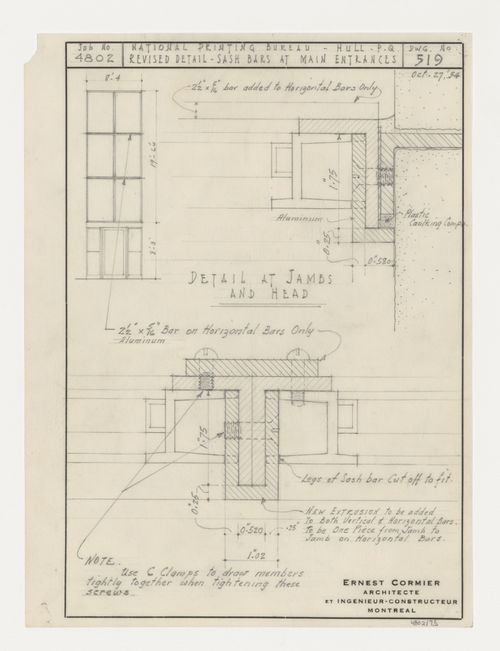 Job No. NATIONAL PRINTING BUREAU - HULL - P.Q. DWG. No
4802 REVISED DETAIL - SASH BARS AT MAIN ENTRANCES 519
Oct. 27, '54
8'-4
2½" x 5/16 bar added to Horizontal Bars Only
1"75
Aluminum
Plastic
Caulking Comp.
0"25
0"580
DETAIL AT JAMBS
AND HEAD
2½" x 5/16" Bar on Horizontal Bars Only
Aluminum
1"75
Legs of Sash bar Cut off to fit.
0"25
NEW EXTRUSION to be added
to Both Vertical & Horizontal Bars.
To be One Piece from Jamb to
Jamb on Horizontal Bars.
0"520 .25
1"02
NOTE.
Use C Clamps to draw members
tightly together when tightening these
screws
ERNEST CORMIER
ARCHITECTE
ET INGENIEUR-CONSTRUCTEUR
MONTREAL